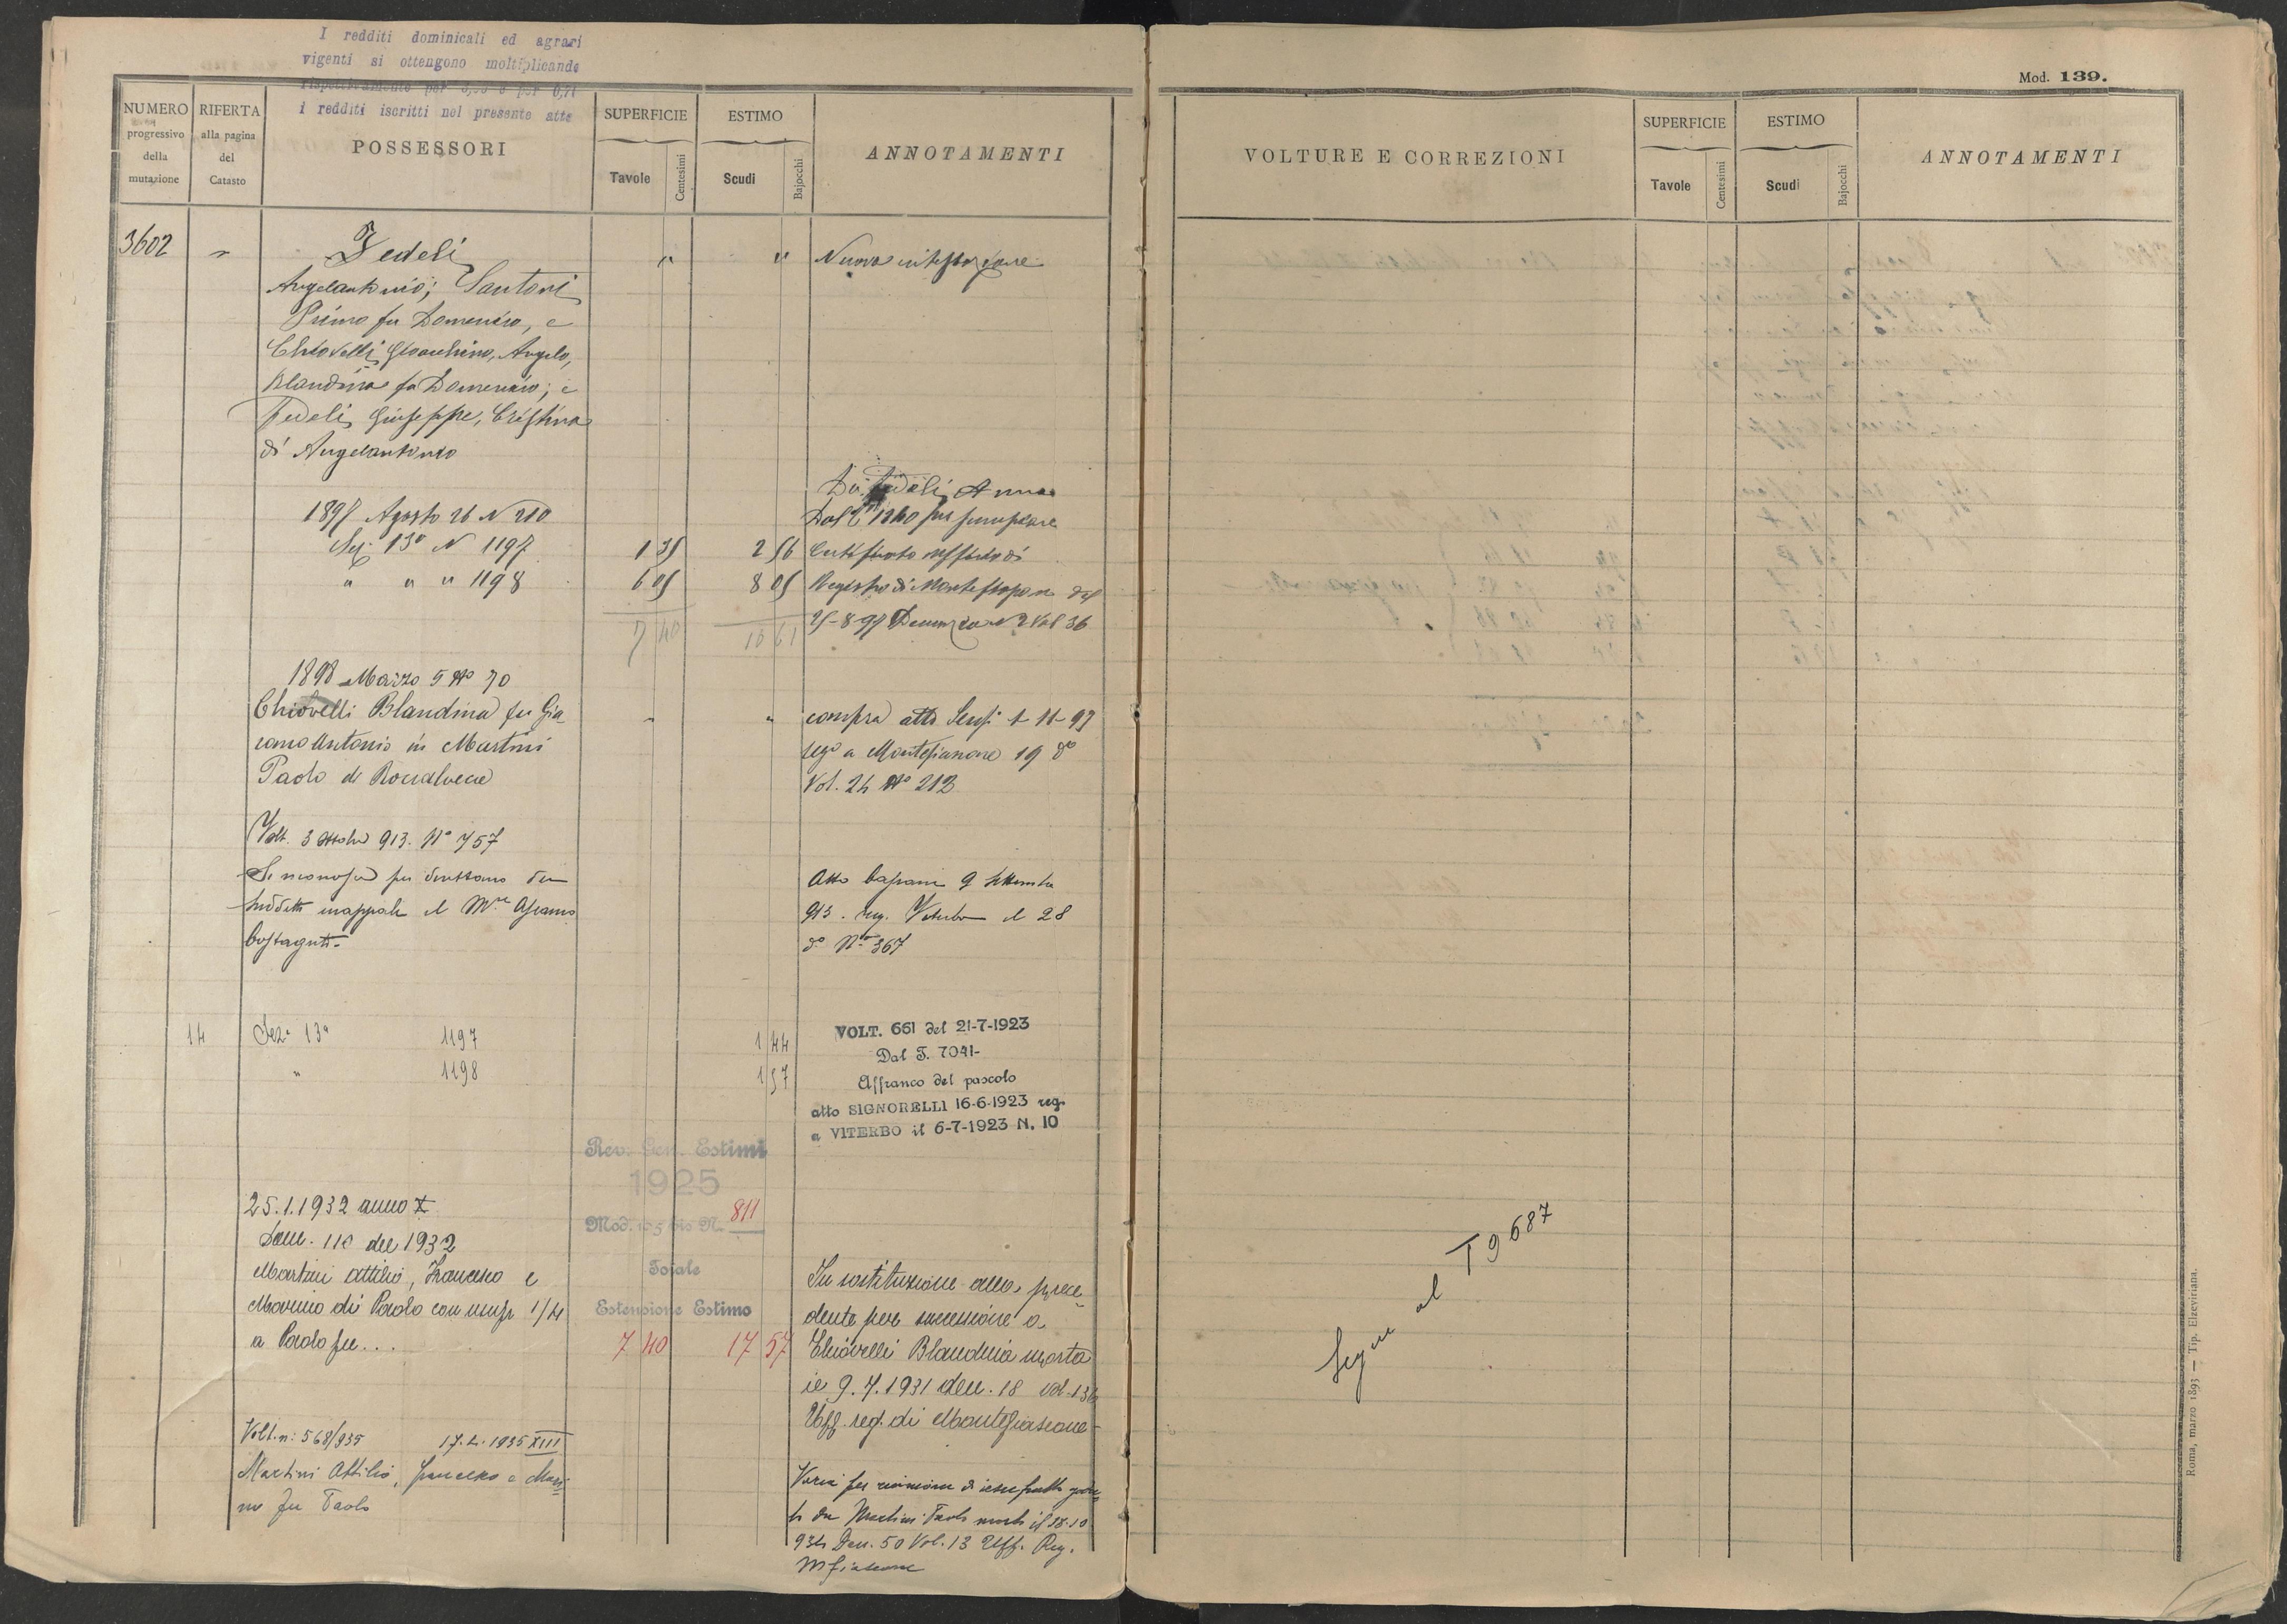 I redditi dominicali ed agrari
vigenti si ottengono moltiplicando
rispettivamente per
i redditi iscritti nel presente atto
NUMERO
progressivo
della
mutazione
RIFERTA
alla pagina
del
Catasto
POSSESSORI
SUPERFICIE
Tavole
Centesimi
ESTIMO
Scudi
Bajocchi
ANNOTAMENTI
3602
Fedeli
Nuova intestazione
Angelantonio; Santori
Primo fu Domenico, e
Chiovelli Gioacchino, Angelo,
Blandina fu Domenico; e
Fedeli Giuseppe, Cristina
di Angelantonio
Da Fedeli Anna
1897 Agosto 26 N 210
Sez. 13a N 1197 1 35 2 56
" " " 1198 6 05 8 05
Certificato Uffizio di
Registro di Montefiascone del
25-8-97 Denunzia N 2 Vol 36
7 40 10 61
1898 Marzo 5 No 70
Chiovelli Blandina fu Gia
como Antonio in Martini
Paolo di Roccalvecce
compra atto 1-11-97
rego a Montefiascone 19 do
Vol. 24 No 212
Volt. 3 Ottobre 913. No 757
Si riconosce per direttario dei
suddetti mappali il Mse Afranio
Costaguti
Atto 9 Settembre
913. reg. Viterbo il 28
do No 367
14 Sez. 13a 1197 1 44
" 1198 1 57
VOLT. 661 del 21-7-1923
Dal T. 7041-
Affranco del pascolo
atto SIGNORELLI 16-6-1923 reg.
a VITERBO il 6-7-1923 N. 10
Rev. Gen. Estimi
1925
Mod. 105 bis N. 811
Totale
Estensione Estimo
7 40 17 57
25.1.1932 anno X
Den. 110 del 1932
Martini Attilio, Francesco e
Marino di Paolo con usufr 1/4
a Paolo fu...
In sostituzione alla prece
dente per successione a
Chiovelli Blandina morta
il 9.7.1931 den. 18 vol. 134
Uff. reg. di Montefiascone
Volt. n: 568/935 17.4.1935 XIII
Martini Attilio, Francesco e Mari
no fu Paolo
Varia per riunione di usufrutto godu
to da Martini Paolo morto il 18.10
934 Den. 50 Vol. 13 Uff. Reg.
Mfiascone
Mod. 139.
VOLTURE E CORREZIONI
SUPERFICIE
Tavole
Centesimi
ESTIMO
Scudi
Bajocchi
ANNOTAMENTI
Segue al T 9687
Roma, marzo 1893 — Tip. Elzeviriana.